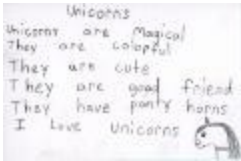 Unicorns
Unicorns are Magical
They are colorful
They are cute
They are good friend
They have ponty horns
I Love Unicorns